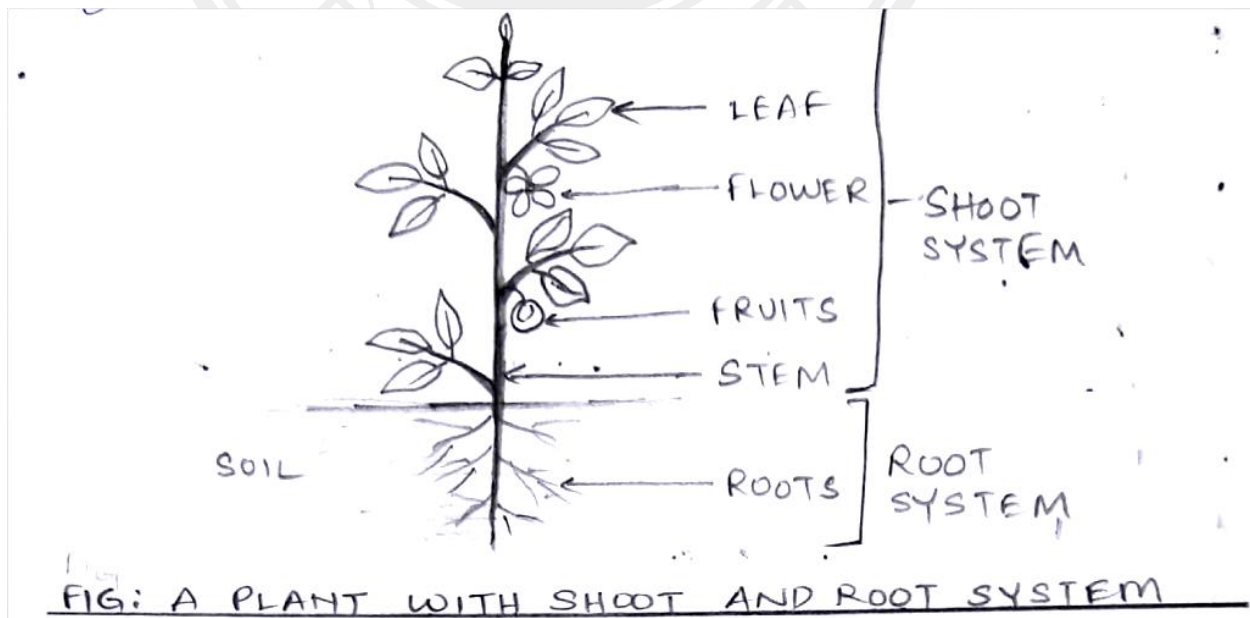 LEAF
FLOWER
SHOOT
SYSTEM
FRUITS
STEM
SOIL
ROOTS
ROOT
SYSTEM
FIG: A PLANT WITH SHOOT AND ROOT SYSTEM